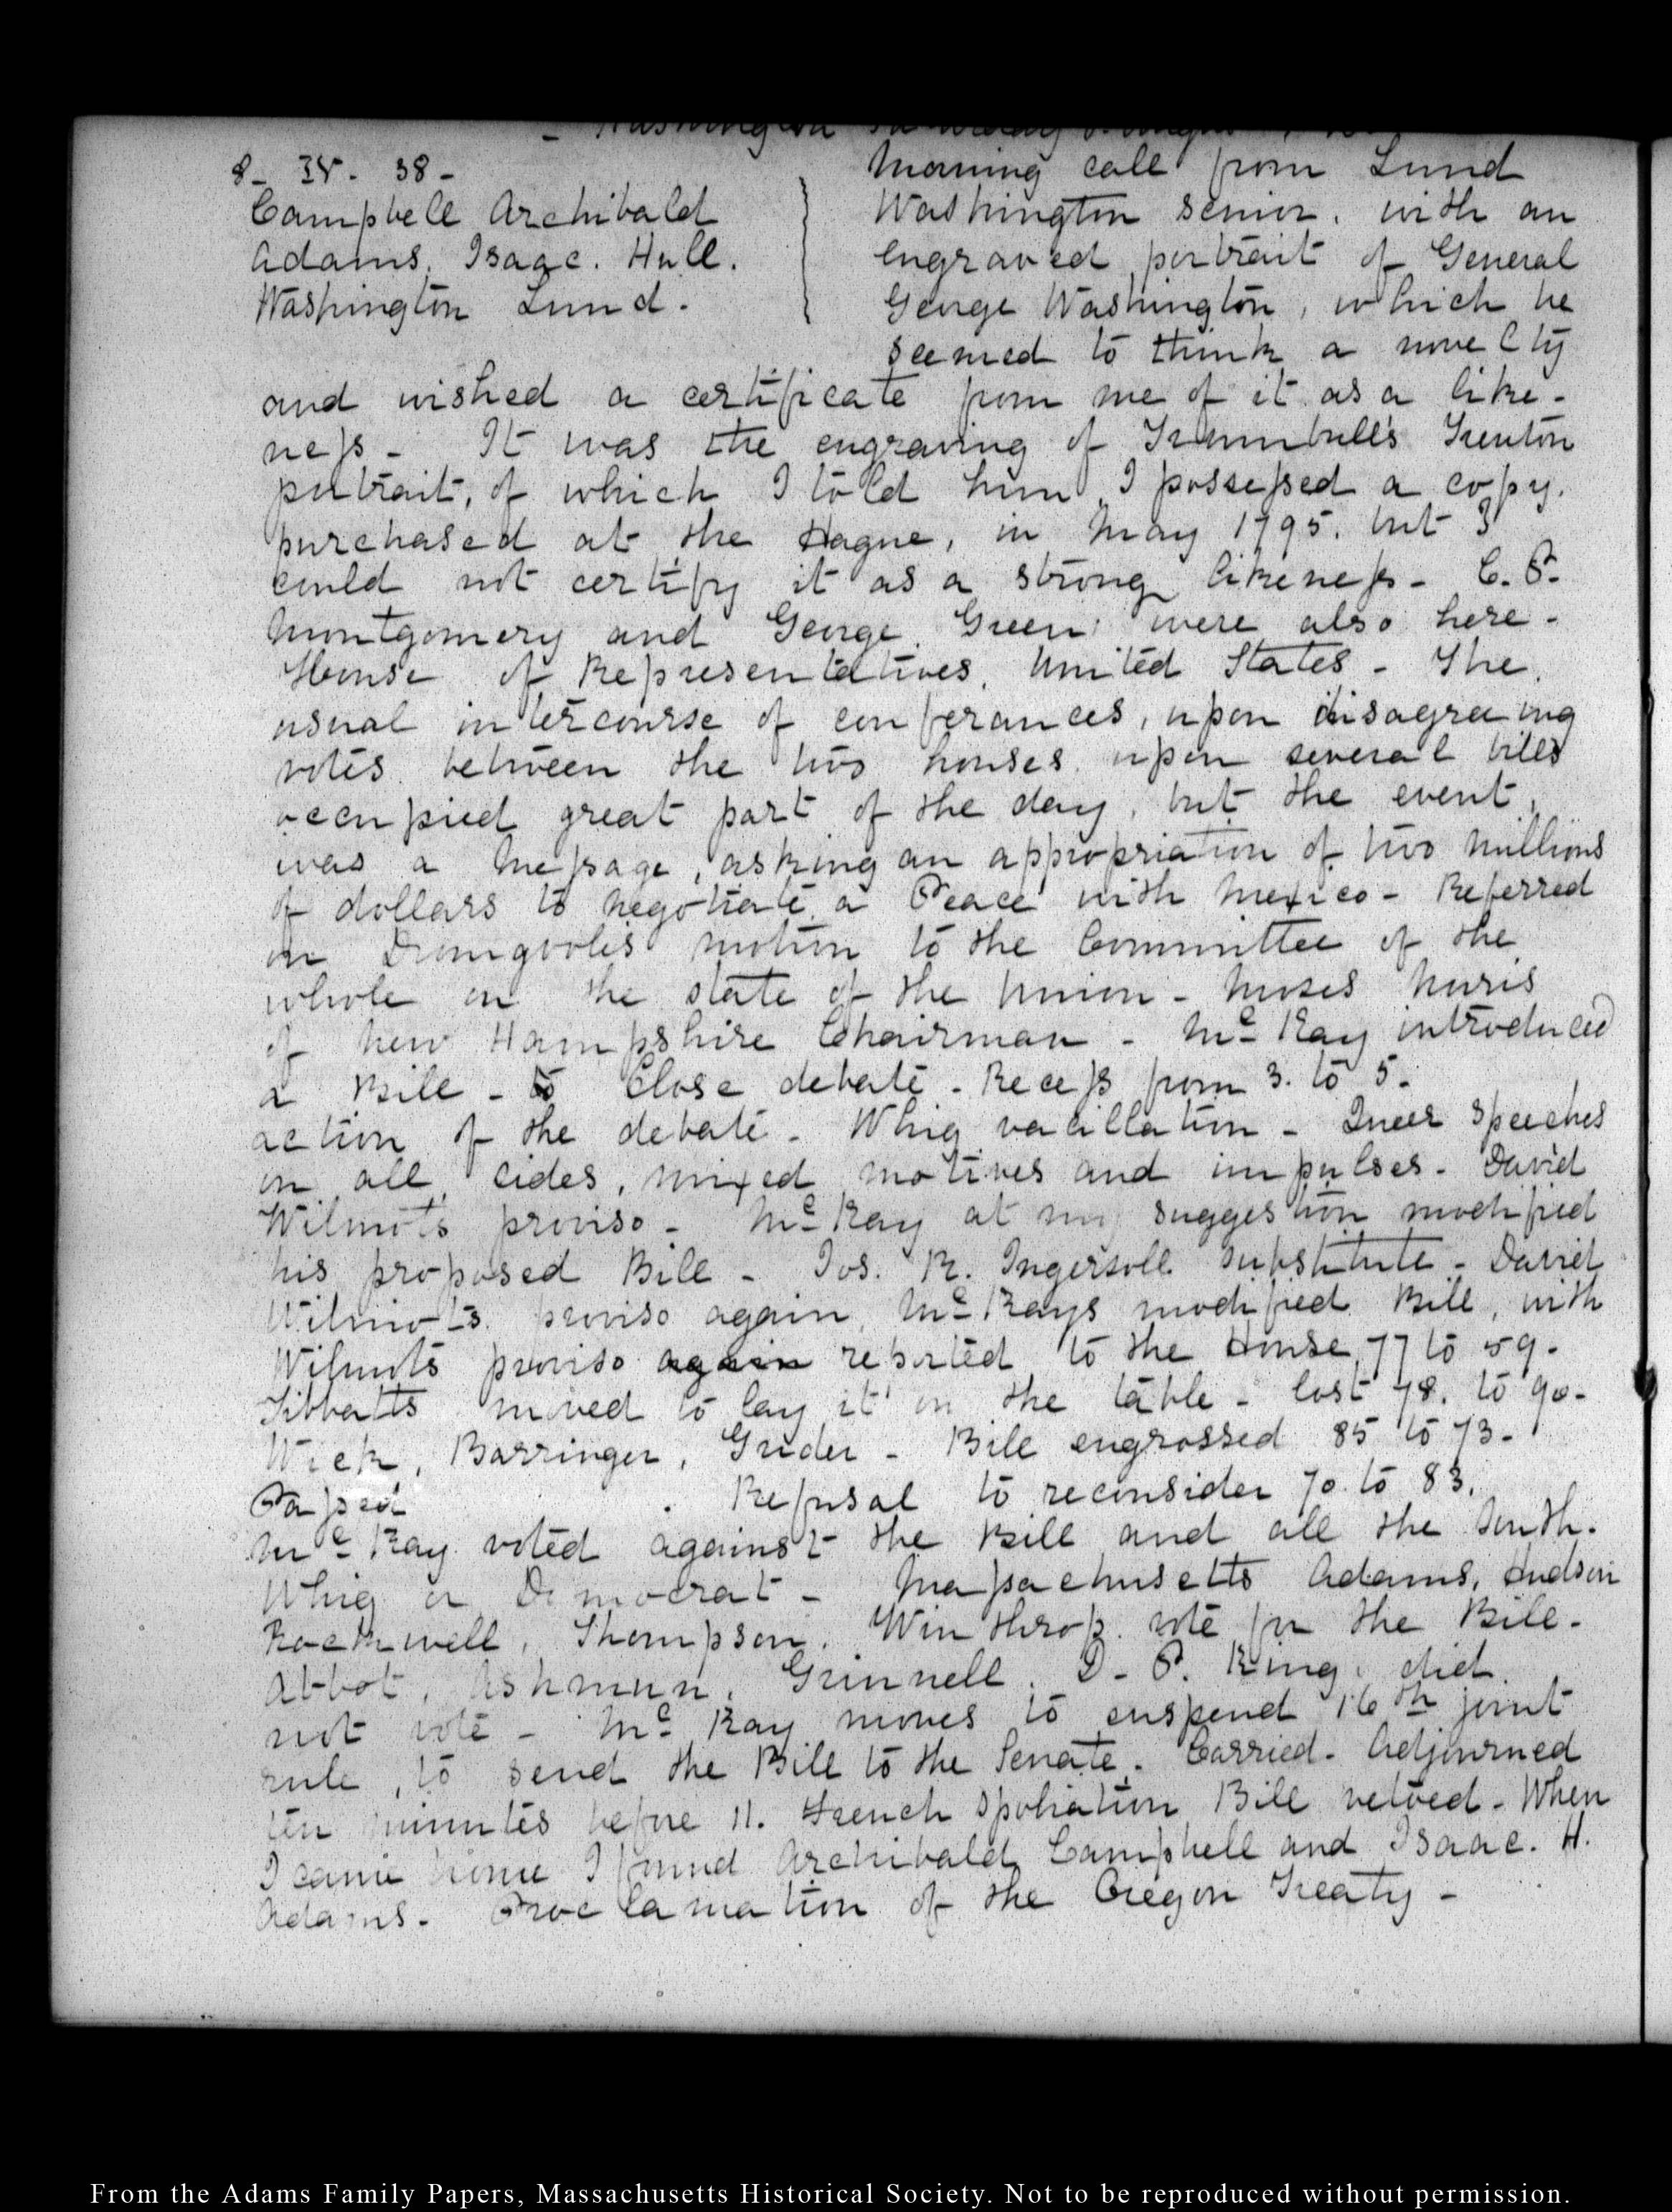 Washington Saturday 8. August
8 - IV. 38 -
Campbell Archibald
Adams. Isaac. Hull.
Washington Lund.
Morning call from Lund
Washington senior. with an
engraved portrait of General
George Washington, which he
seemed to think a novelty
and wished a certificate from me of it as a like-
ness - It was the engraving of Trumbull's Trenton
portrait, of which I told him I possessed a copy.
purchased at the Hague, in May 1795. but I
could not certify it as a strong likeness - C. P.
Montgomery and George Green were also here -
House of Representatives, United States - The
usual intercourse of conferances, upon disagreeing
votes between the two houses upon several bills
occupied great part of the day, but the event,
was a Message, asking an appropriation of two Millions
of dollars to negotiate a Peace with Mexico - Referred
on Dromgoole's motion to the Committee of the
whole on the state of the Union - Moses Norris
of New Hampshire Chairman - Mc Kay introduced
a Bill - to Close debate - Recess from 3. to 5.
action of the debate - Whig vacillation - Queer speeches
on all cides, mixed motives and impulses - David
Wilmots proviso - Mc Kay at my suggestion modified
his proposed Bill - Jos. R. Ingersoll substitute - David
Wilmots. proviso again, Mc Kays modified Bill, with
Wilmots proviso again reported to the House, 77 to 59.
Tibbatts moved to lay it on the table - lost 78. to 90-
Wick, Barringer, Grider - Bill engrossed 85 to 73-
Passed . Refusal to reconsider 70. to 83.
Mc Kay voted against the Bill and all the South.
Whig or Democrat - Massachusetts Adams, Hudson
Rockwell, Thompson. Winthrop. vote for the Bill -
Abbot, Ashmun, Grinnell. D - P. King, did
not vote - Mc Kay moves to suspend 16th joint
rule, to send the Bill to the Senate. Carried - Adjourned
ten minutes before 11. French Spoliation Bill vetoed - When
I came home I found Archibald Campbell and Isaac. H.
Adams - Proclamation of the Oregon Treaty -
From the Adams Family Papers, Massachusetts Historical Society. Not to be reproduced without permission.